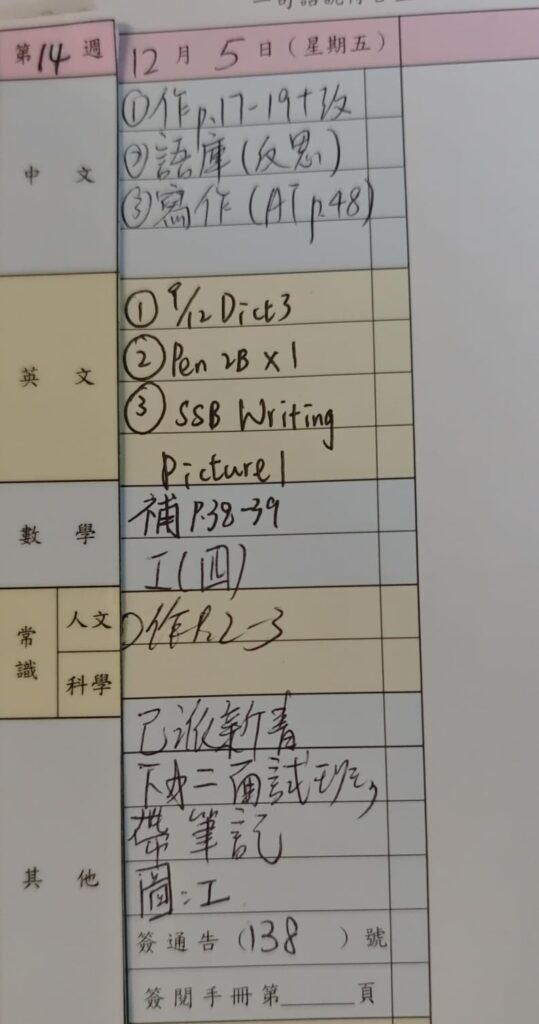 第14週 12月5日(星期五)
中文
①作p.17-19+改
②語庫(反思)
③寫作(AT p.48)
英文
① 9/12 Dict3
② Pen 2B x 1
③ SSB Writing
Picture 1
數學
補P.38-39
工(四)
常識
人文
作P.2-3
科學
其他
已派新青
二面試班,
帶筆記
圖:工
簽通告(138)號
簽閱手冊第______頁